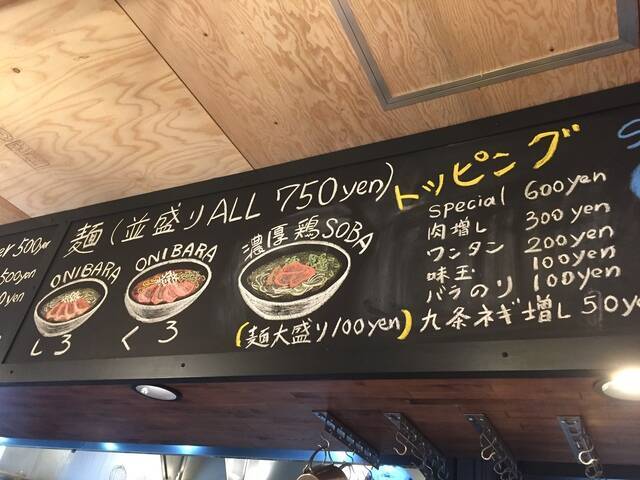 500yen
500yen
0yen
麺(並盛りALL 750yen)
ONIBARA
しろ
ONIBARA
くろ
濃厚鶏SOBA
(麺大盛り100yen)
トッピング
special 600yen
肉増し 300yen
ワンタン 200yen
味玉 100yen
バラのり 100yen
九条ネギ増し 50ye